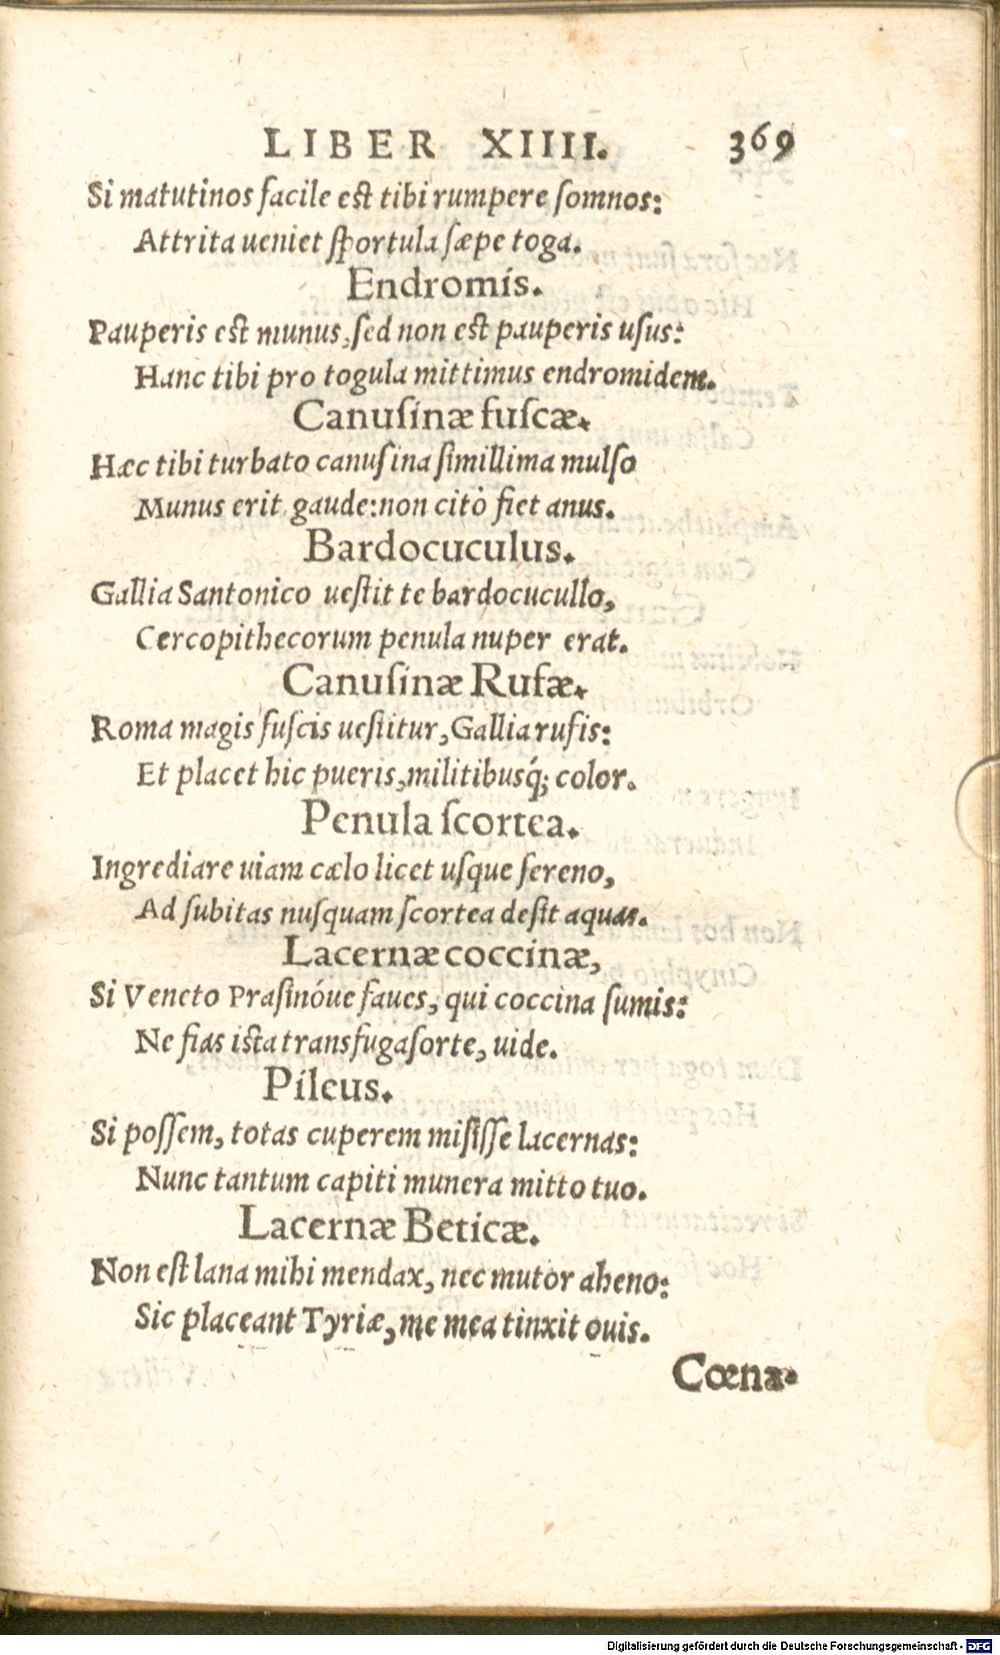 LIBER XIIII. 369
Si matutinos facile est tibi rumpere somnos:
Attrita ueniet sportula sæpe toga.
Endromis.
Pauperis est munus, sed non est pauperis usus:
Hanc tibi pro togula mittimus endromidem.
Canusinæ fuscæ.
Hæc tibi turbato canusina simillima mulso
Munus erit gaude: non citò fiet anus.
Bardocuculus.
Gallia Santonico uestit te bardocucullo,
Cercopithecorum penula nuper erat.
Canusinæ Rufæ.
Roma magis fuscis uestitur, Gallia rufis:
Et placet hic pueris, militibusq́; color.
Penula scortea.
Ingrediare uiam cælo licet usque sereno,
Ad subitas nusquam scortea desit aquas.
Lacernæ coccinæ,
Si Veneto Prasinóue faues, qui coccina sumis:
Ne fias ista transfuga sorte, uide.
Pileus.
Si possem, totas cuperem misisse lacernas:
Nunc tantum capiti munera mitto tuo.
Lacernæ Beticæ.
Non est lana mihi mendax, nec mutor aheno:
Sic placeant Tyriæ, me mea tinxit ouis.
Cœna.
Digitalisierung gefördert durch die Deutsche Forschungsgemeinschaft - DFG